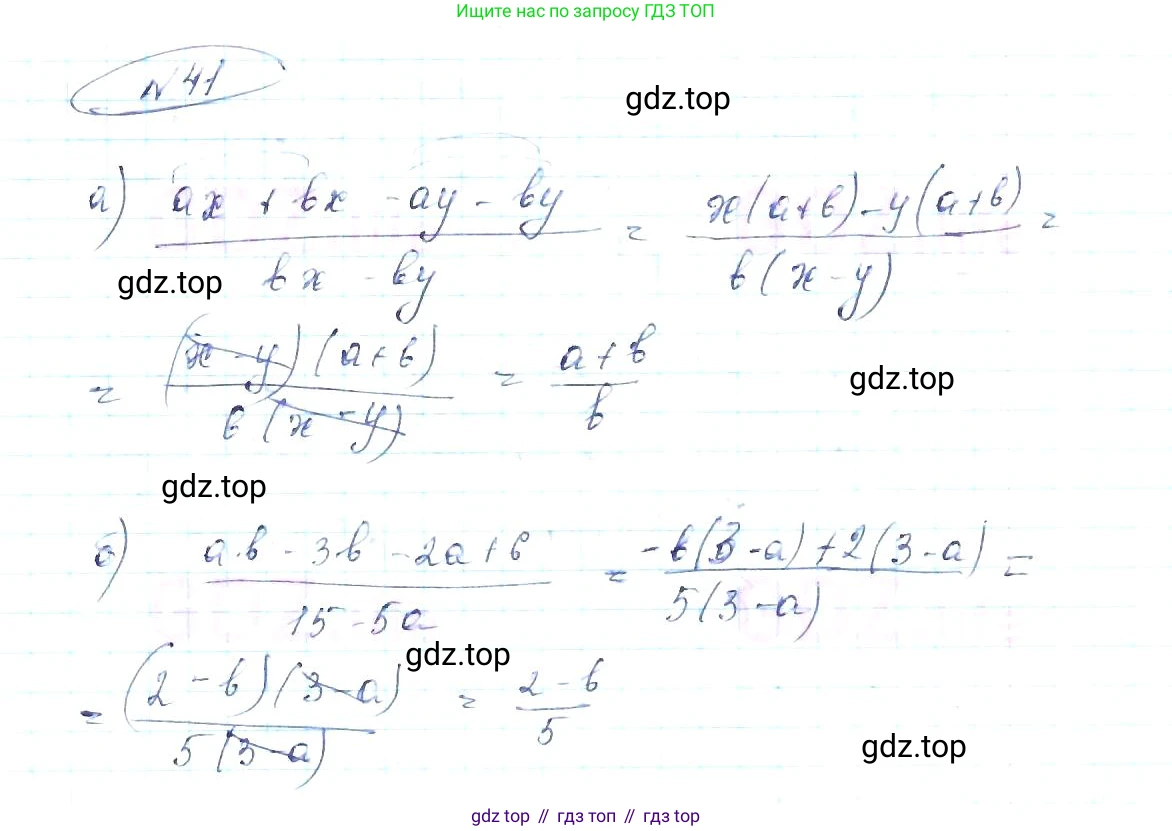 Ищите ответы по запросу ГДЗ ТОП
№ 41
gdz.top
а) (ax + bx - ay - by) / (bx - by) = (x(a+b) - y(a+b)) / (b(x-y)) =
gdz.top
= ((x-y)(a+b)) / (b(x-y)) = (a+b) / b
gdz.top
gdz.top
б) (ab - 3b - 2a + 6) / (15 - 5a) = (-b(3-a) + 2(3-a)) / (5(3-a)) =
gdz.top
= ((2-b)(3-a)) / (5(3-a)) = (2-b) / 5
gdz.top
gdz top // гдз топ // гдз top